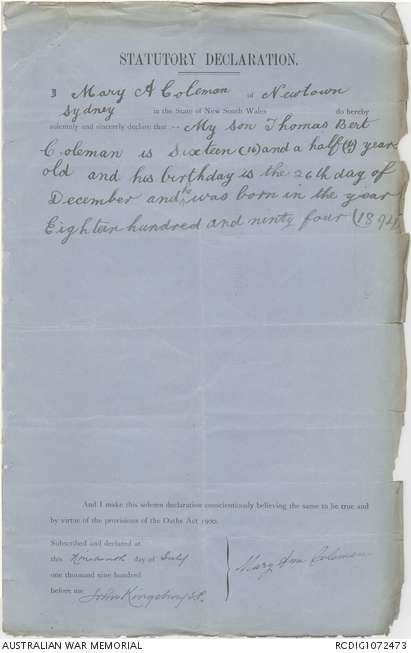 STATUTORY DECLARATION.
I Mary A Coleman of Newtown
Sydney in the State of New South Wales do hereby
solemnly and sincerely declare that :- My son Thomas Bert
Coleman is sixteen (16) and a half (½) year
old and his birthday is the 26th day of
December and he was born in the year
Eighteen hundred and ninty four (1894)
And I make this solemn declaration conscientiously believing the same to be true and
by virtue of the provisions of the Oaths Act 1900.
Subscribed and declared at
this day of July
one thousand nine hundred
before me John Kingsbury J.P.
Mary Ann Coleman
AUSTRALIAN WAR MEMORIAL
RCDIG1072473